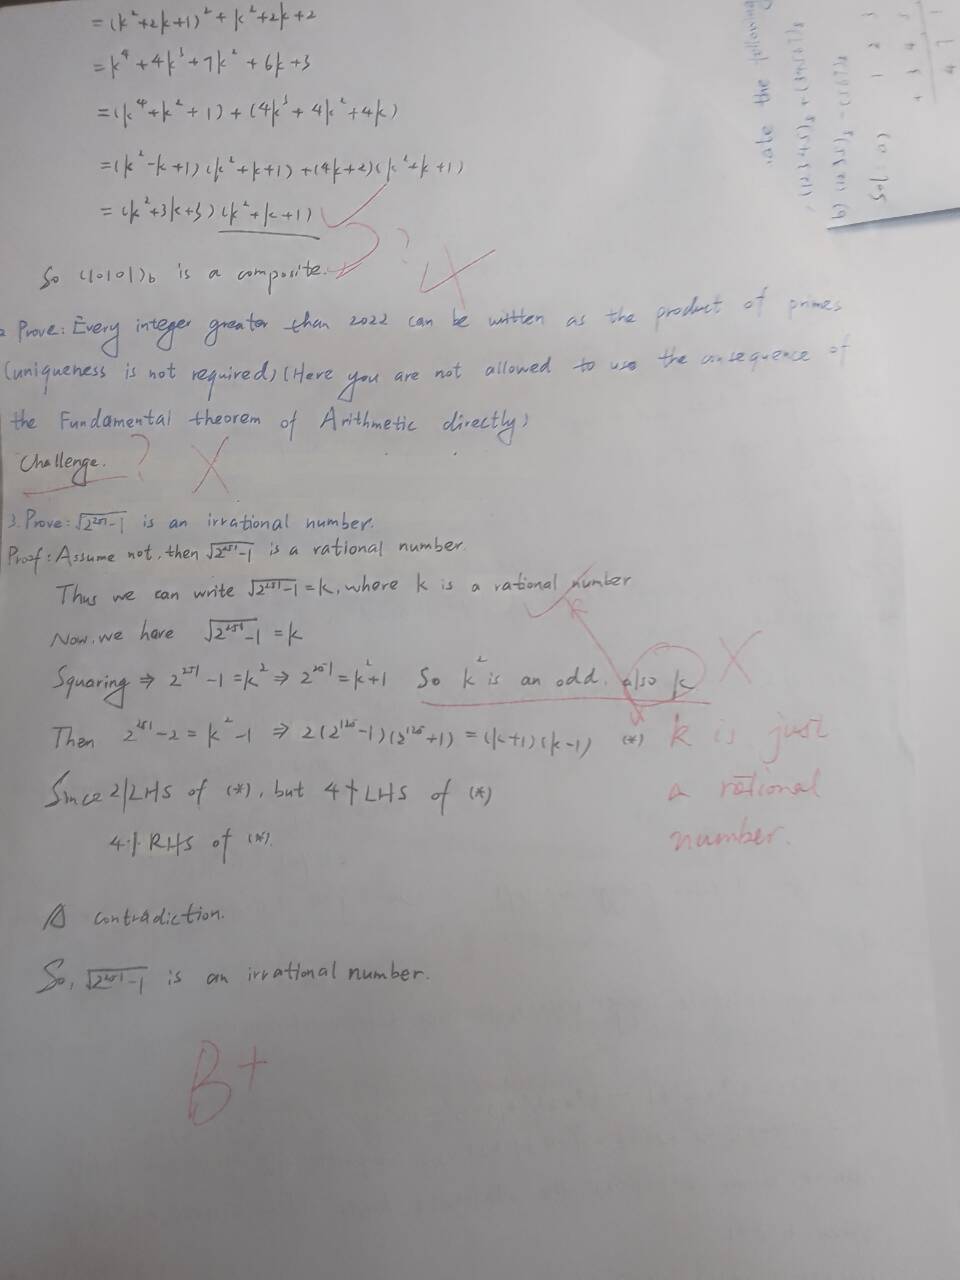 =(k²+2k+1)²+k²+2k+2
=k⁴+4k³+7k²+6k+3
=(k⁴+k²+1)+(4k³+4k²+4k)
=(k²-k+1)(k²+k+1)+(4k+2)(k²+k+1)
=(k²+3k+3)(k²+k+1)
?
So (10101)b is a composite.
2 Prove: Every integer greater than 2022 can be written as the product of primes
(uniqueness is not required) (Here you are not allowed to use the consequence of
the Fundamental theorem of Arithmetic directly)
Challenge. ?
3. Prove: √2²⁵¹-1 is an irrational number.
Proof: Assume not, then √2²⁵¹-1 is a rational number.
Thus we can write √2²⁵¹-1 = k, where k is a rational number
Now, we have √2²⁵¹-1 = k
Squaring ⇒ 2²⁵¹-1=k² ⇒ 2²⁵¹=k²+1 So k² is an odd. also k
Then 2²⁵¹-2=k²-1 ⇒ 2(2¹²⁵-1)(2¹²⁵+1)=(k+1)(k-1) (*)
k is just
a rational
number.
Since 2|LHS of (*), but 4∤LHS of (*)
4| RHS of (*).
A contradiction.
So, √2²⁵¹-1 is an irrational number.
B+
ate the following